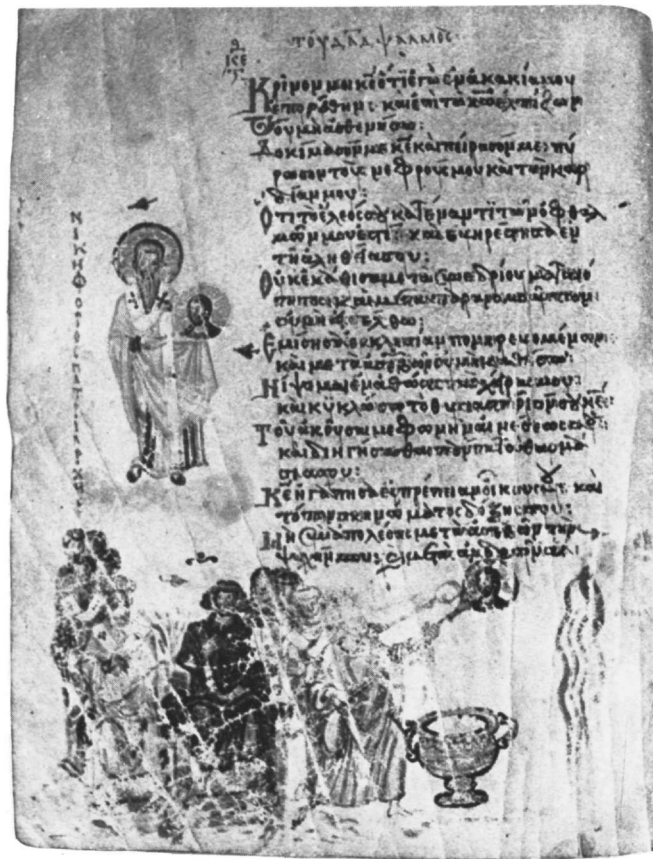 τοῦ δαδ ψαλμός
Κρῖνόν μοι κε ὅτι ἐγὼ ἐν ἀκακία μου
ἐπορεύθην· καὶ ἐπὶ τῷ κω ἐλπίζων
οὐ μὴ ἀσθενήσω:
Δοκίμασόν με κε καὶ πείρασόν με· πύ
ρωσον τοὺς νεφρούς μου καὶ τὴν καρ
δίαν μου:
Ὅτι τὸ ἔλεός σου κατέναντι τῶν ὀφθαλ
μῶν μου ἐστί· καὶ εὐηρέστησα ἐν
τῇ ἀληθεία σου:
Οὐκ ἐκάθισα μετὰ συνεδρίου ματαιό
τητος· καὶ μετὰ παρανομούντων
οὐ μὴ εἰσέλθω:
Ἐμίσησα ἐκκλησίαν πονηρευομένων·
καὶ μετὰ ἀσεβῶν οὐ μὴ καθίσω:
Νίψομαι ἐν ἀθώοις τὰς χεῖράς μου·
καὶ κυκλώσω τὸ θυσιαστήριόν σου κε:
Τοῦ ἀκοῦσαί με φωνῆς αἰνέσεώς σου·
καὶ διηγήσασθαι πάντα τὰ θαυμά
σιά σου:
Κε ἠγάπησα εὐπρέπειαν οἴκου σου· καὶ
τόπον σκηνώματος δόξης σου:
Μὴ συναπολέσης μετὰ ἀσεβῶν τὴν
ψυχήν μου· καὶ μετὰ ἀνδρῶν
ΝΙΚΗΦΟΡΟΣ ΠΑΤΡΙΑΡΧΗΣ